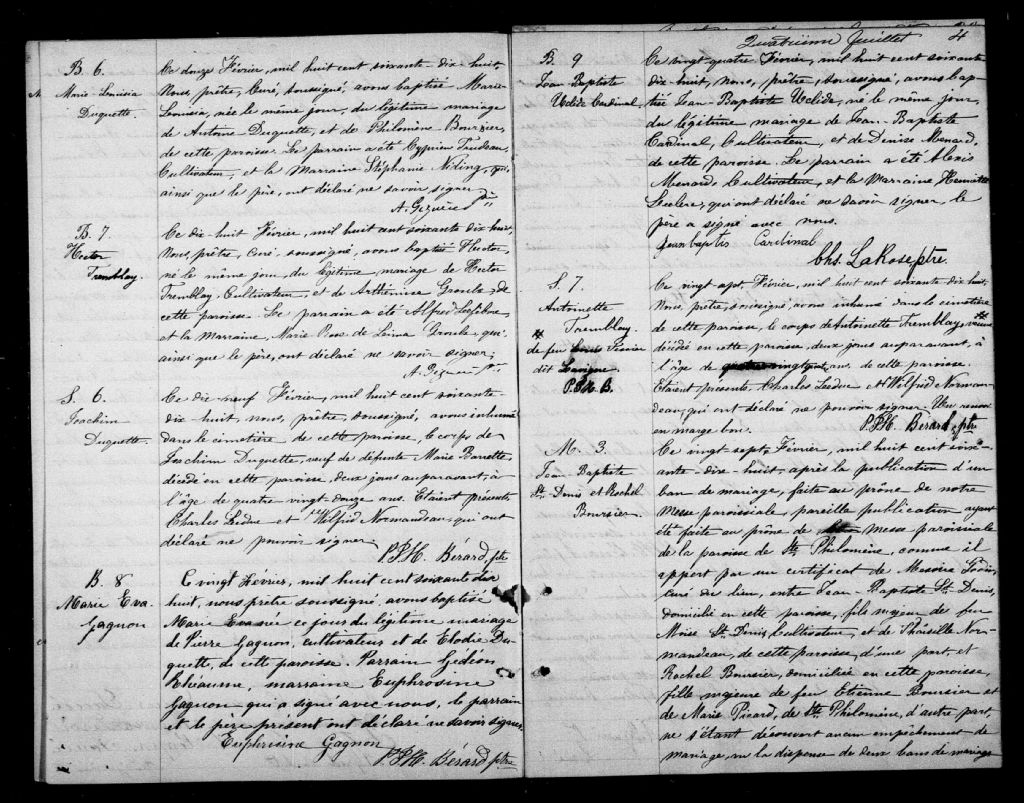 B. 6.
Marie-Leonisia
Duquette.
Ce douze Février, mil huit cent soixante-dix-huit,
Nous, prêtre, Curé, soussigné, avons baptisé Marie-
Leonisia, née le même jour, du légitime mariage
de Antoine Duquette, et de Philomène Boursier,
de cette paroisse. Le parrain a été Cyprien Trudeau,
Cultivateur, et la Marraine Stéphanie qui,
ainsi que le père, ont déclaré ne savoir signer.
B 7.
Hector
Tremblay.
Ce dix-huit Février, mil huit cent soixante dix huit,
Nous, prêtre, Curé, soussigné, avons baptisé Hector,
né le même jour, du légitime mariage de Hector
Tremblay, Cultivateur, et de Arthémise Groulx, de
cette paroisse. Le parrain a été Alfred Lefebvre,
et la Marraine, Marie Groulx, qui,
ainsi que le père, ont déclaré ne savoir signer;
S. 6
Joachim
Duquette.
Ce dix-neuf Février, mil huit cent soixante
dix-huit nous, prêtre, soussigné, avons inhumé
dans le cimetière de cette paroisse, le corps de
Joachim Duquette, veuf de défunte Marie Barrette,
décédé en cette paroisse, deux jours auparavant, à
l'âge de quatre vingt-douze ans. Etaient présents,
Charles Leduc et Wilfrid Normandeau, qui ont
déclaré ne pouvoir signer.
P.P.H. Bérard, ptre
B. 8
Marie Eva
Gagnon
Ce vingt Février, mil huit cent soixante dix
huit, nous prêtre soussigné, avons baptisé
Marie Eva née ce jour du légitime mariage
de Pierre Gagnon, cultivateur, et de Elodie Du-
quette, de cette paroisse. Parrain Gédéon
Rhéaume, marraine Euphrosine
Gagnon qui a signé avec nous, le parrain
et le père présent ont déclaré ne savoir signer.
Euphrosine Gagnon
P.P.H. Bérard ptre
Quatrième feuillet 4
B. 9
Jean Baptiste
Uclide Cardinal,
Ce vingt-quatre Février, mil huit cent soixante
dix-huit, Nous, prêtre, soussigné, avons bap-
tisé Jean-Baptiste Uclide, né le même jour,
du légitime mariage de Jean-Baptiste
Cardinal, Cultivateur, et de Denise Menard,
de cette paroisse. Le parrain a été Alexis
Menard, Cultivateur, et la Marraine Henriette
Leclerc, qui ont déclaré ne savoir signer, le
père a signé avec nous.
Jean baptis Cardinal
Chs. LaRose, ptre.
S. 7.
Antoinette
Tremblay.
de feu Février
dit Lavigne
P.P.H. B.
Ce vingt sept Février, mil huit cent soixante dix huit,
Nous, prêtre, soussigné, avons inhumé dans le cimetière
de cette paroisse, le corps de Antoinette Tremblay, veuve
décédé en cette paroisse, deux jours auparavant, à
l'âge de ans, de cette paroisse.
Etaient présents, Charles Leduc et Wilfrid Norman-
deau, qui ont déclaré ne pouvoir signer. Un renvoi
en marge bon.
P.P.H. Bérard, ptre
M. 3
Jean Baptiste
St. Denis et Rachel
Boursier.
Ce vingt sept, Février, mil huit cent soix-
ante-dix-huit, après la publication d'un
ban de mariage, faite au prône de notre
Messe paroissiale, pareille publication ayant
été faite au prône de Messe paroissiale
de la paroisse de Ste. Philomène, comme il
appert par un certificat de Messire
curé du lieu, entre Jean-Baptiste St. Denis,
domicilié en cette paroisse, fils majeur de feu
Moïse St. Denis, Cultivateur, et de Nor-
mandeau, de cette paroisse, d'une part, et
Rachel Boursier, domiciliée en cette paroisse,
fille majeure de feu Etienne Boursier et
de Marie Picard, de Ste. Philomène, d'autre part,
ne s'étant découvert aucun empêchement de
mariage, vu la dispense de deux bans de mariage